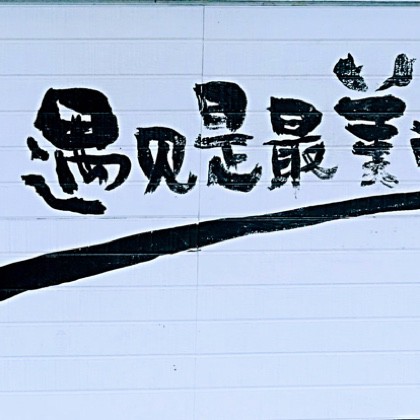 遇见是最美